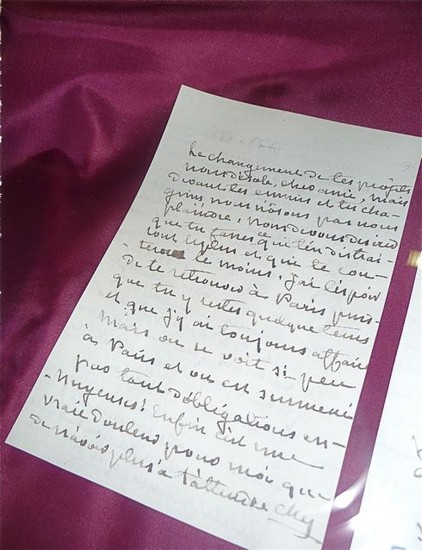 Le changement de tes projets
nous désole, chère amie, mais
devant tes ennuis et tes cha-
grins, nous n'osons pas nous
plaindre : nous devons désirer
que tu fasses ce qui t'en distrai-
le plus et qui te coû-
tera le moins. J'ai l'espoir
de te retrouver à Paris puis-
que tu y restes quelque temps
et que j'y ai toujours affaire
mais on se voit si peu
à Paris et on est surmené
par tant d'obligations en-
nuyeuses! Enfin c'est une
vraie douleur pour moi que
de n'avoir plus à t'attendre chez